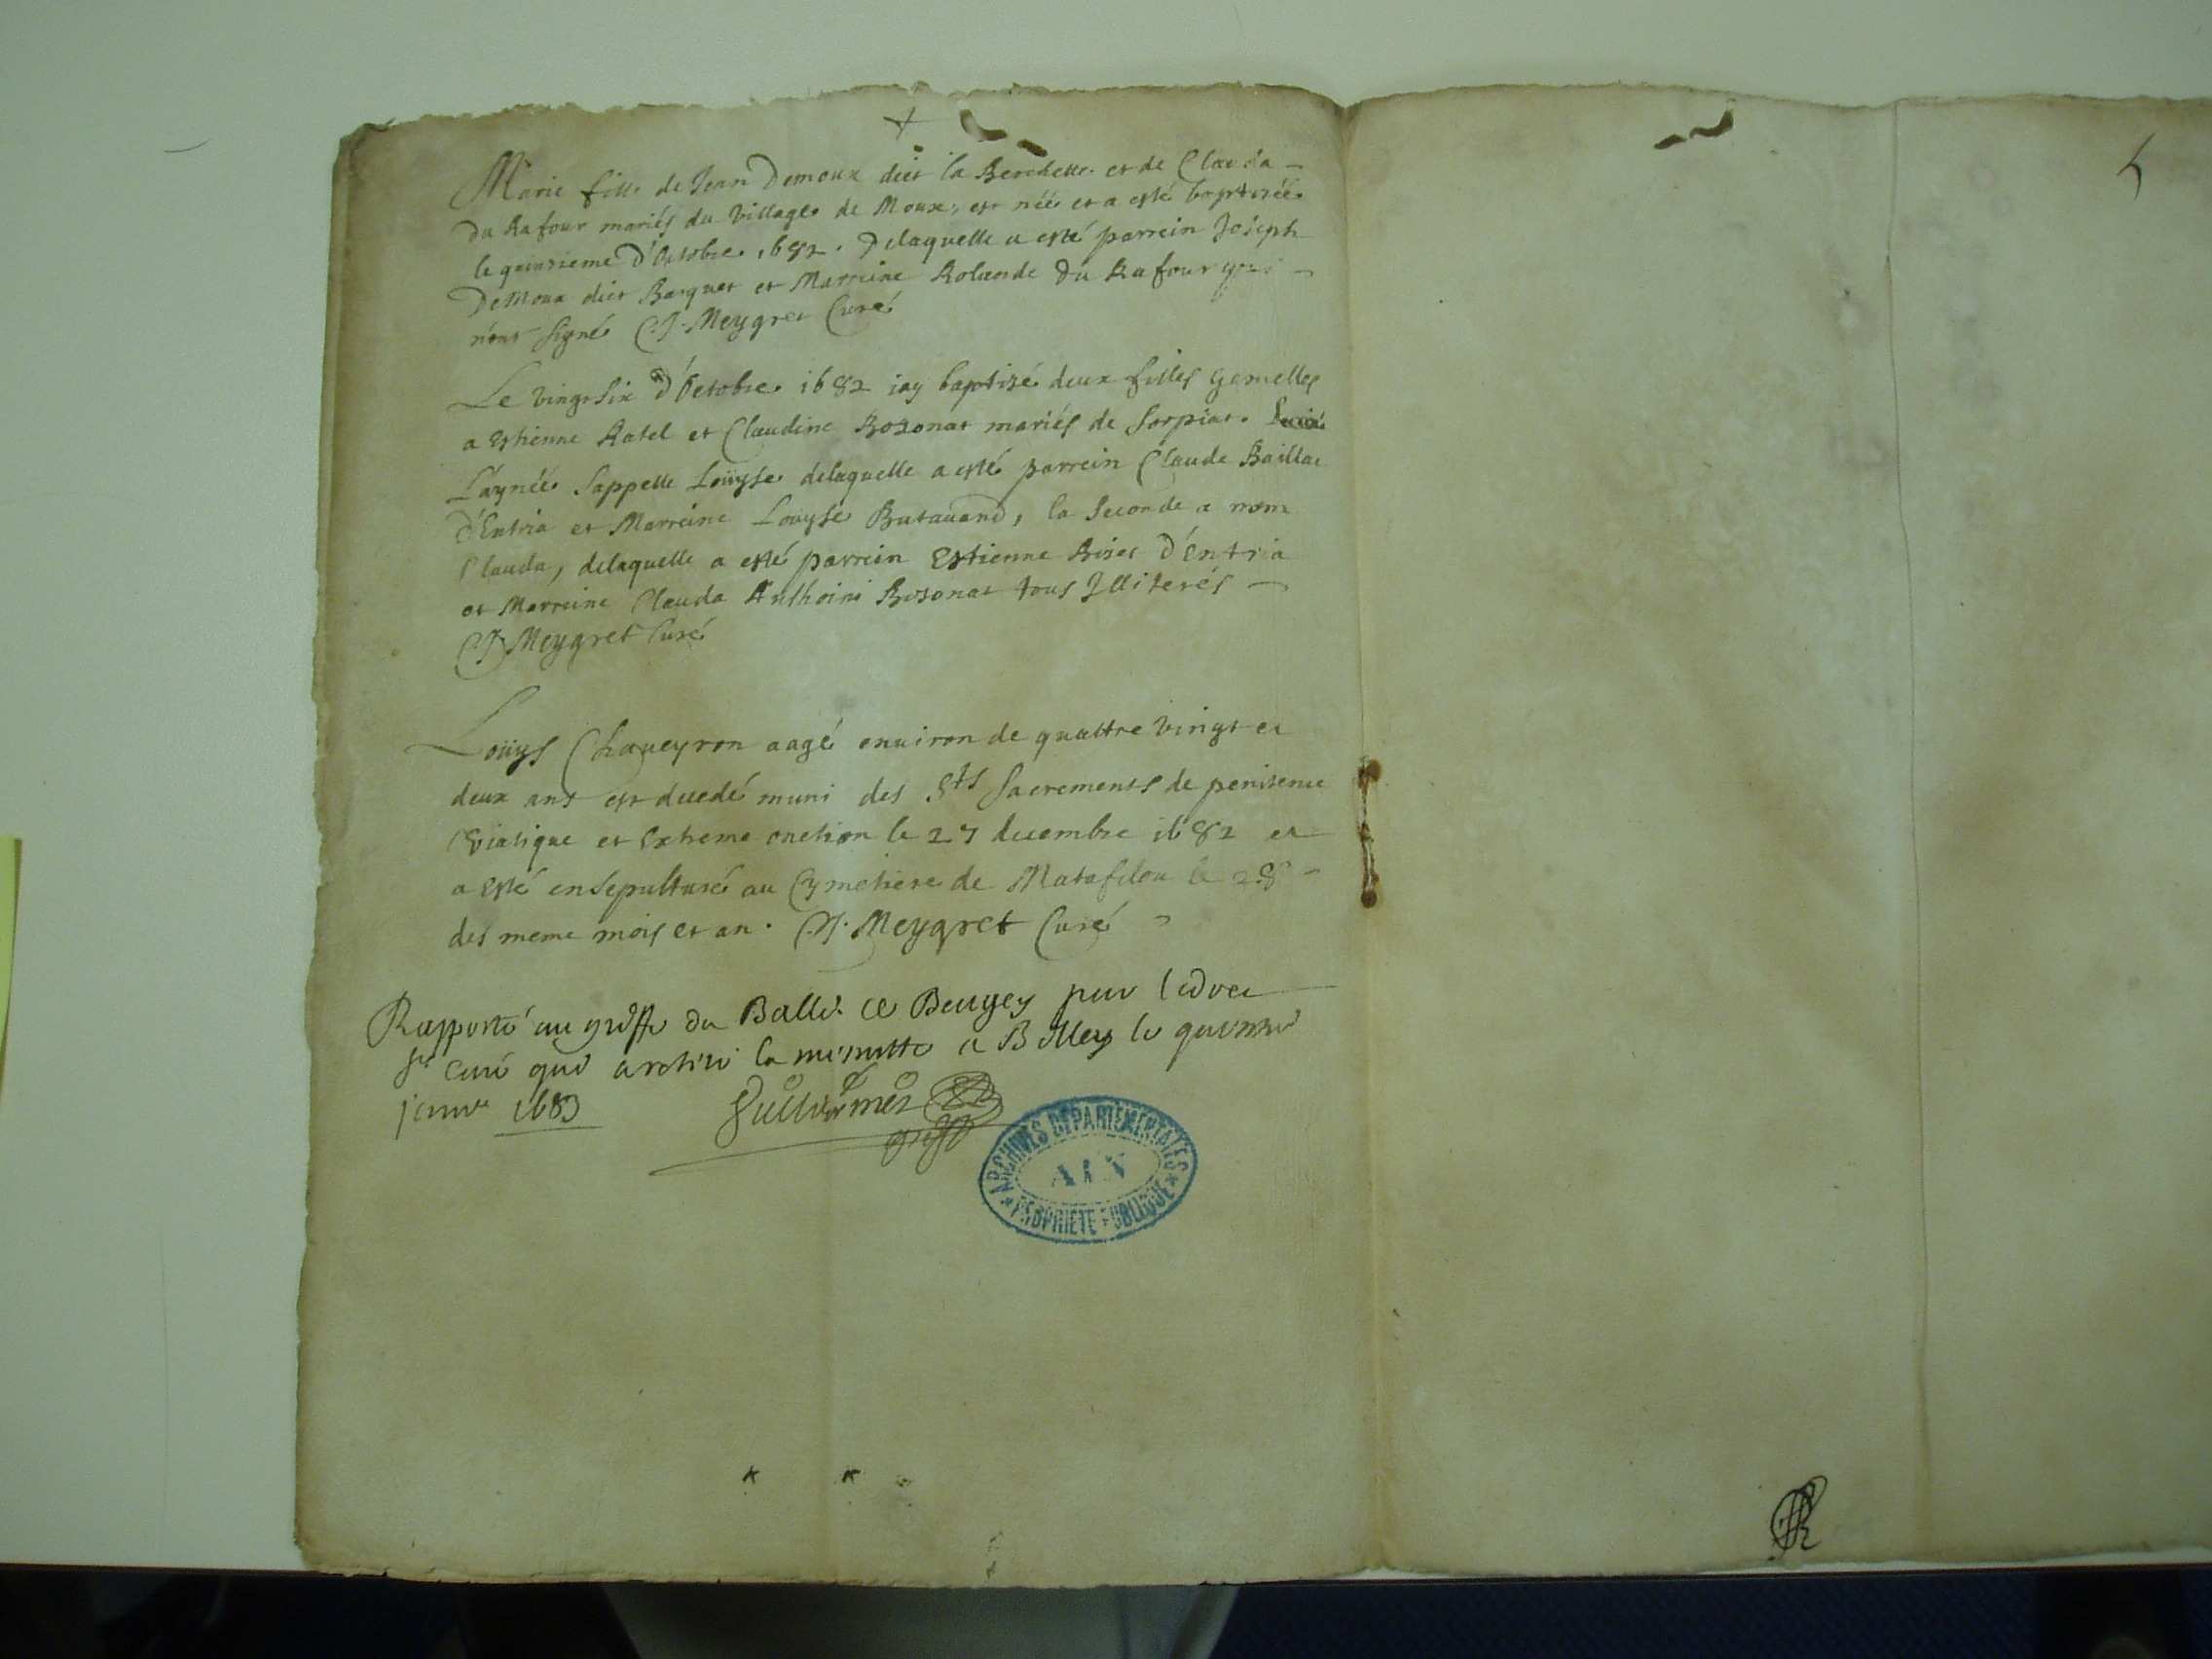 Marie fille de Jean Demoux dict la Berchette et de Clauda
du Rafour mariés du Village de Moux, est néé et a esté baptizéé
le quinsieme d'Octobre 1682. Delaquelle a esté parrein Joseph
DeMoux dict Barquet et Marreine Rolande du Rafour qui
n'ont signé C.J. Meygret Curé
Le vingt six d'Octobre 1682 iay baptizé deux filles gemelles
a Estienne Ratel et Claudine Bozonat mariés de Corpiat.
L'aynéé sappelle Loüyse delaquelle a esté parrein Claude Baillat
d'Entria et Marreine Loüyse Butauand, la seconde a nom
Clauda, delaquelle a esté parrein Estienne d'Entria
et Marreine Clauda Anthoini Bozonat tous Illiterés
C.J. Meygret Curé
Loüys Chaueyron aagé enuiron de quattre vingt et
deux ans est decedé muni des Sts Sacrements de penitence
Viatique et Extreme onction le 27 decembre 1682 et
a esté ensepulturé au Cymetiere de Matafelou le 28
des meme mois et an. C.J. Meygret Curé
Rapporté au greffe du Balle de Beugey par ledict
sr curé qui a retiré la minutte a Belley le
janv 1683
greff
ARCHIVES DEPARTEMENTALES
AIN
PROPRIETE PUBLIQUE